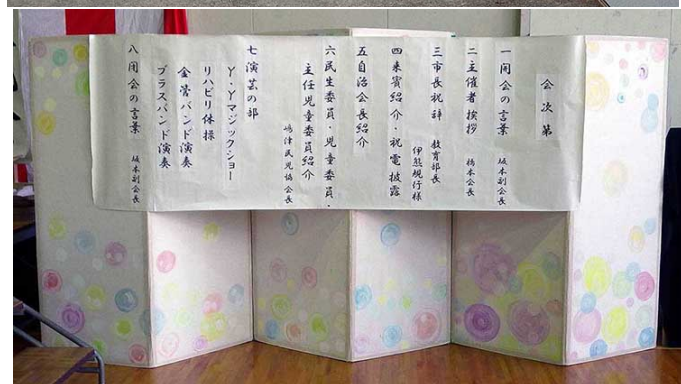 会次第
一 開会の言葉 坂本副会長
二 主催者挨拶 橋本会長
三 市長祝辞 教育部長
伊熊規行様
四 来賓紹介・祝電披露
五 自治会長紹介
六 民生委員・児童委員・
主任児童委員紹介
嶋津民児協会長
七 演芸の部
Y・Yマジック・ショー
リハビリ体操
金管バンド演奏
ブラスバンド演奏
八 閉会の言葉 坂本副会長